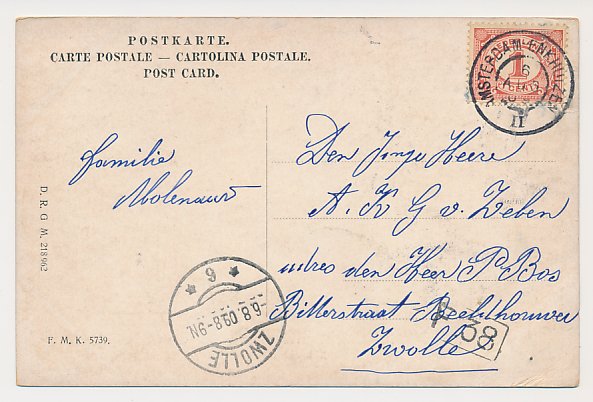 POSTKARTE.
CARTE POSTALE — CARTOLINA POSTALE.
POST CARD.
1
CENT
AMSTERDAM-ENKHUIZEN
6
II
familie
Molenaar
Den Jonge Heere
A. K G v. Zeben
adres den Heer P Bos
Bitterstraat Beeldhouwer
Zwolle
38
* 6 *
6.8.09.8-9N.
ZWOLLE
D. R. G. M. 218962
F. M. K. 5739.